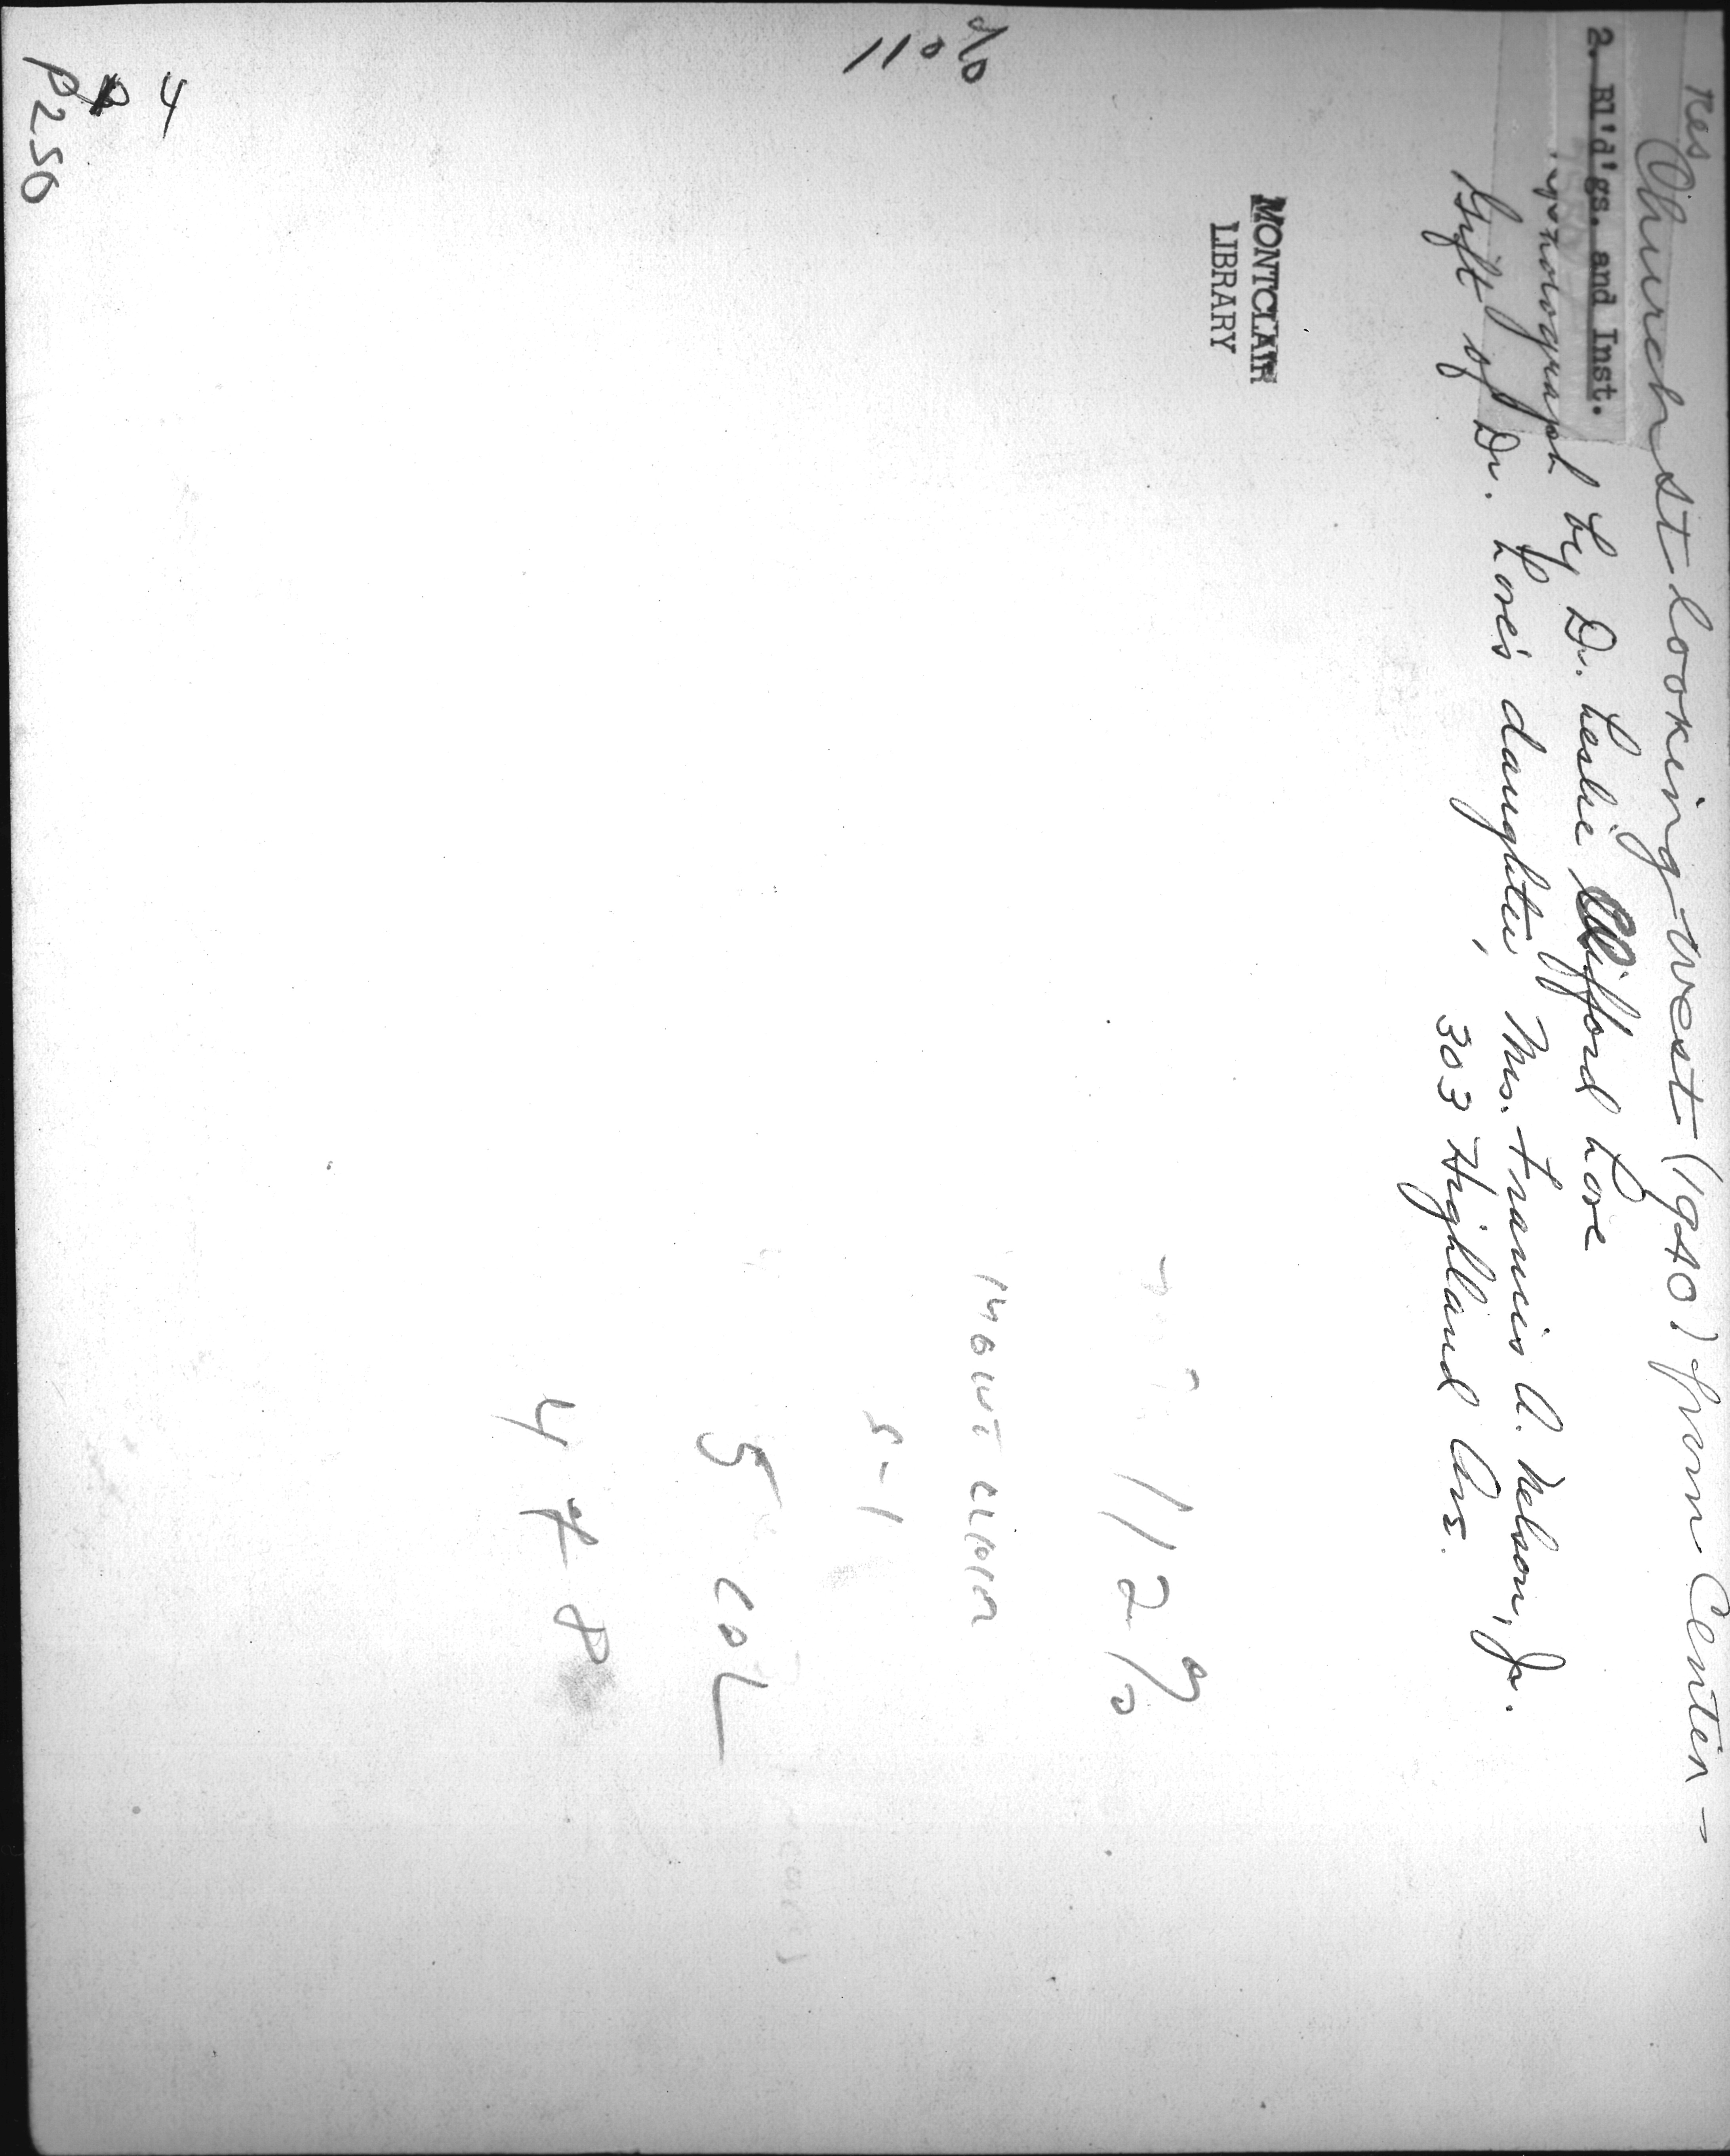 res
Church st looking west (1940?) from Center -
2. Bl'd'gs. and Inst.
photograph by Dr. Leslie Clifford Love
Gift of Dr. Love's daughter, Mrs. Francis A. Nelson, Jr.
303 Highland Ave.
MONTCLAIR
LIBRARY
112%
110%
5-1
5 COL
4 7 8
4
P250